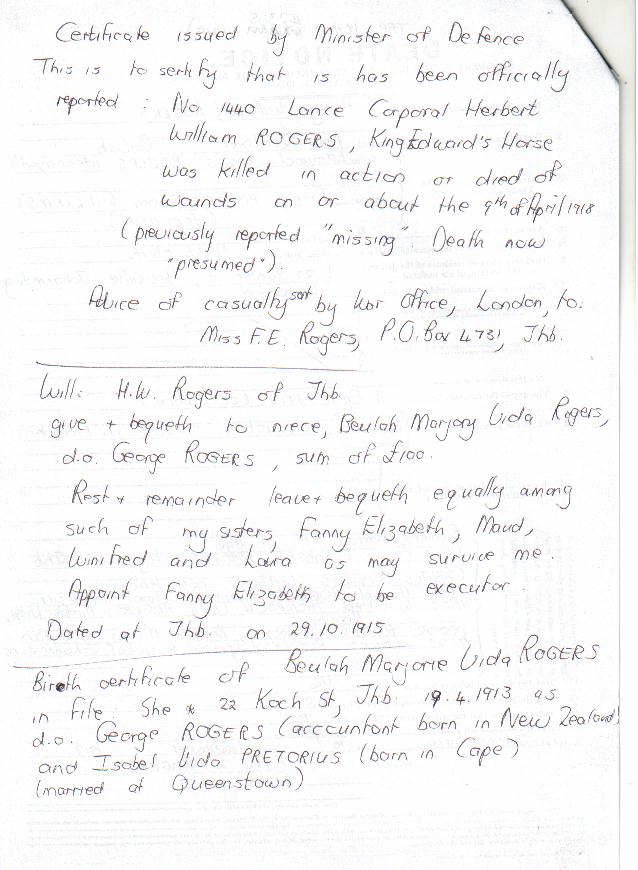 Certificate issued by Minister of Defence
This is to sertify that is has been officially
reported : No 1440 Lance Corporal Herbert
William ROGERS, King Edward's Horse
was killed in action or died of
wounds on or about the 9th of April 1918
(previously reported "missing". Death now
"presumed").
Advice of casualty sent by War Office, London, to:
Miss F.E. Rogers, P.O. Box 4731, Jhb.
Will: H.W. Rogers of Jhb.
give + bequeth to niece, Beulah Marjory Vida Rogers,
d.o. George ROGERS, sum of £100.
Rest + remainder leave + bequeth equally among
such of my sisters, Fanny Elizabeth, Maud,
Winifred and Laura as may survive me.
Appoint Fanny Elizabeth to be executor.
Dated at Jhb. on 29.10.1915
Birth certificate of Beulah Marjorie Vida ROGERS
in file. She * 22 Koch St, Jhb. 19.4.1913 as
d.o. George ROGERS (acccountant born in New Zealand)
and Isobel Vida PRETORIUS (born in Cape)
(married at Queenstown)